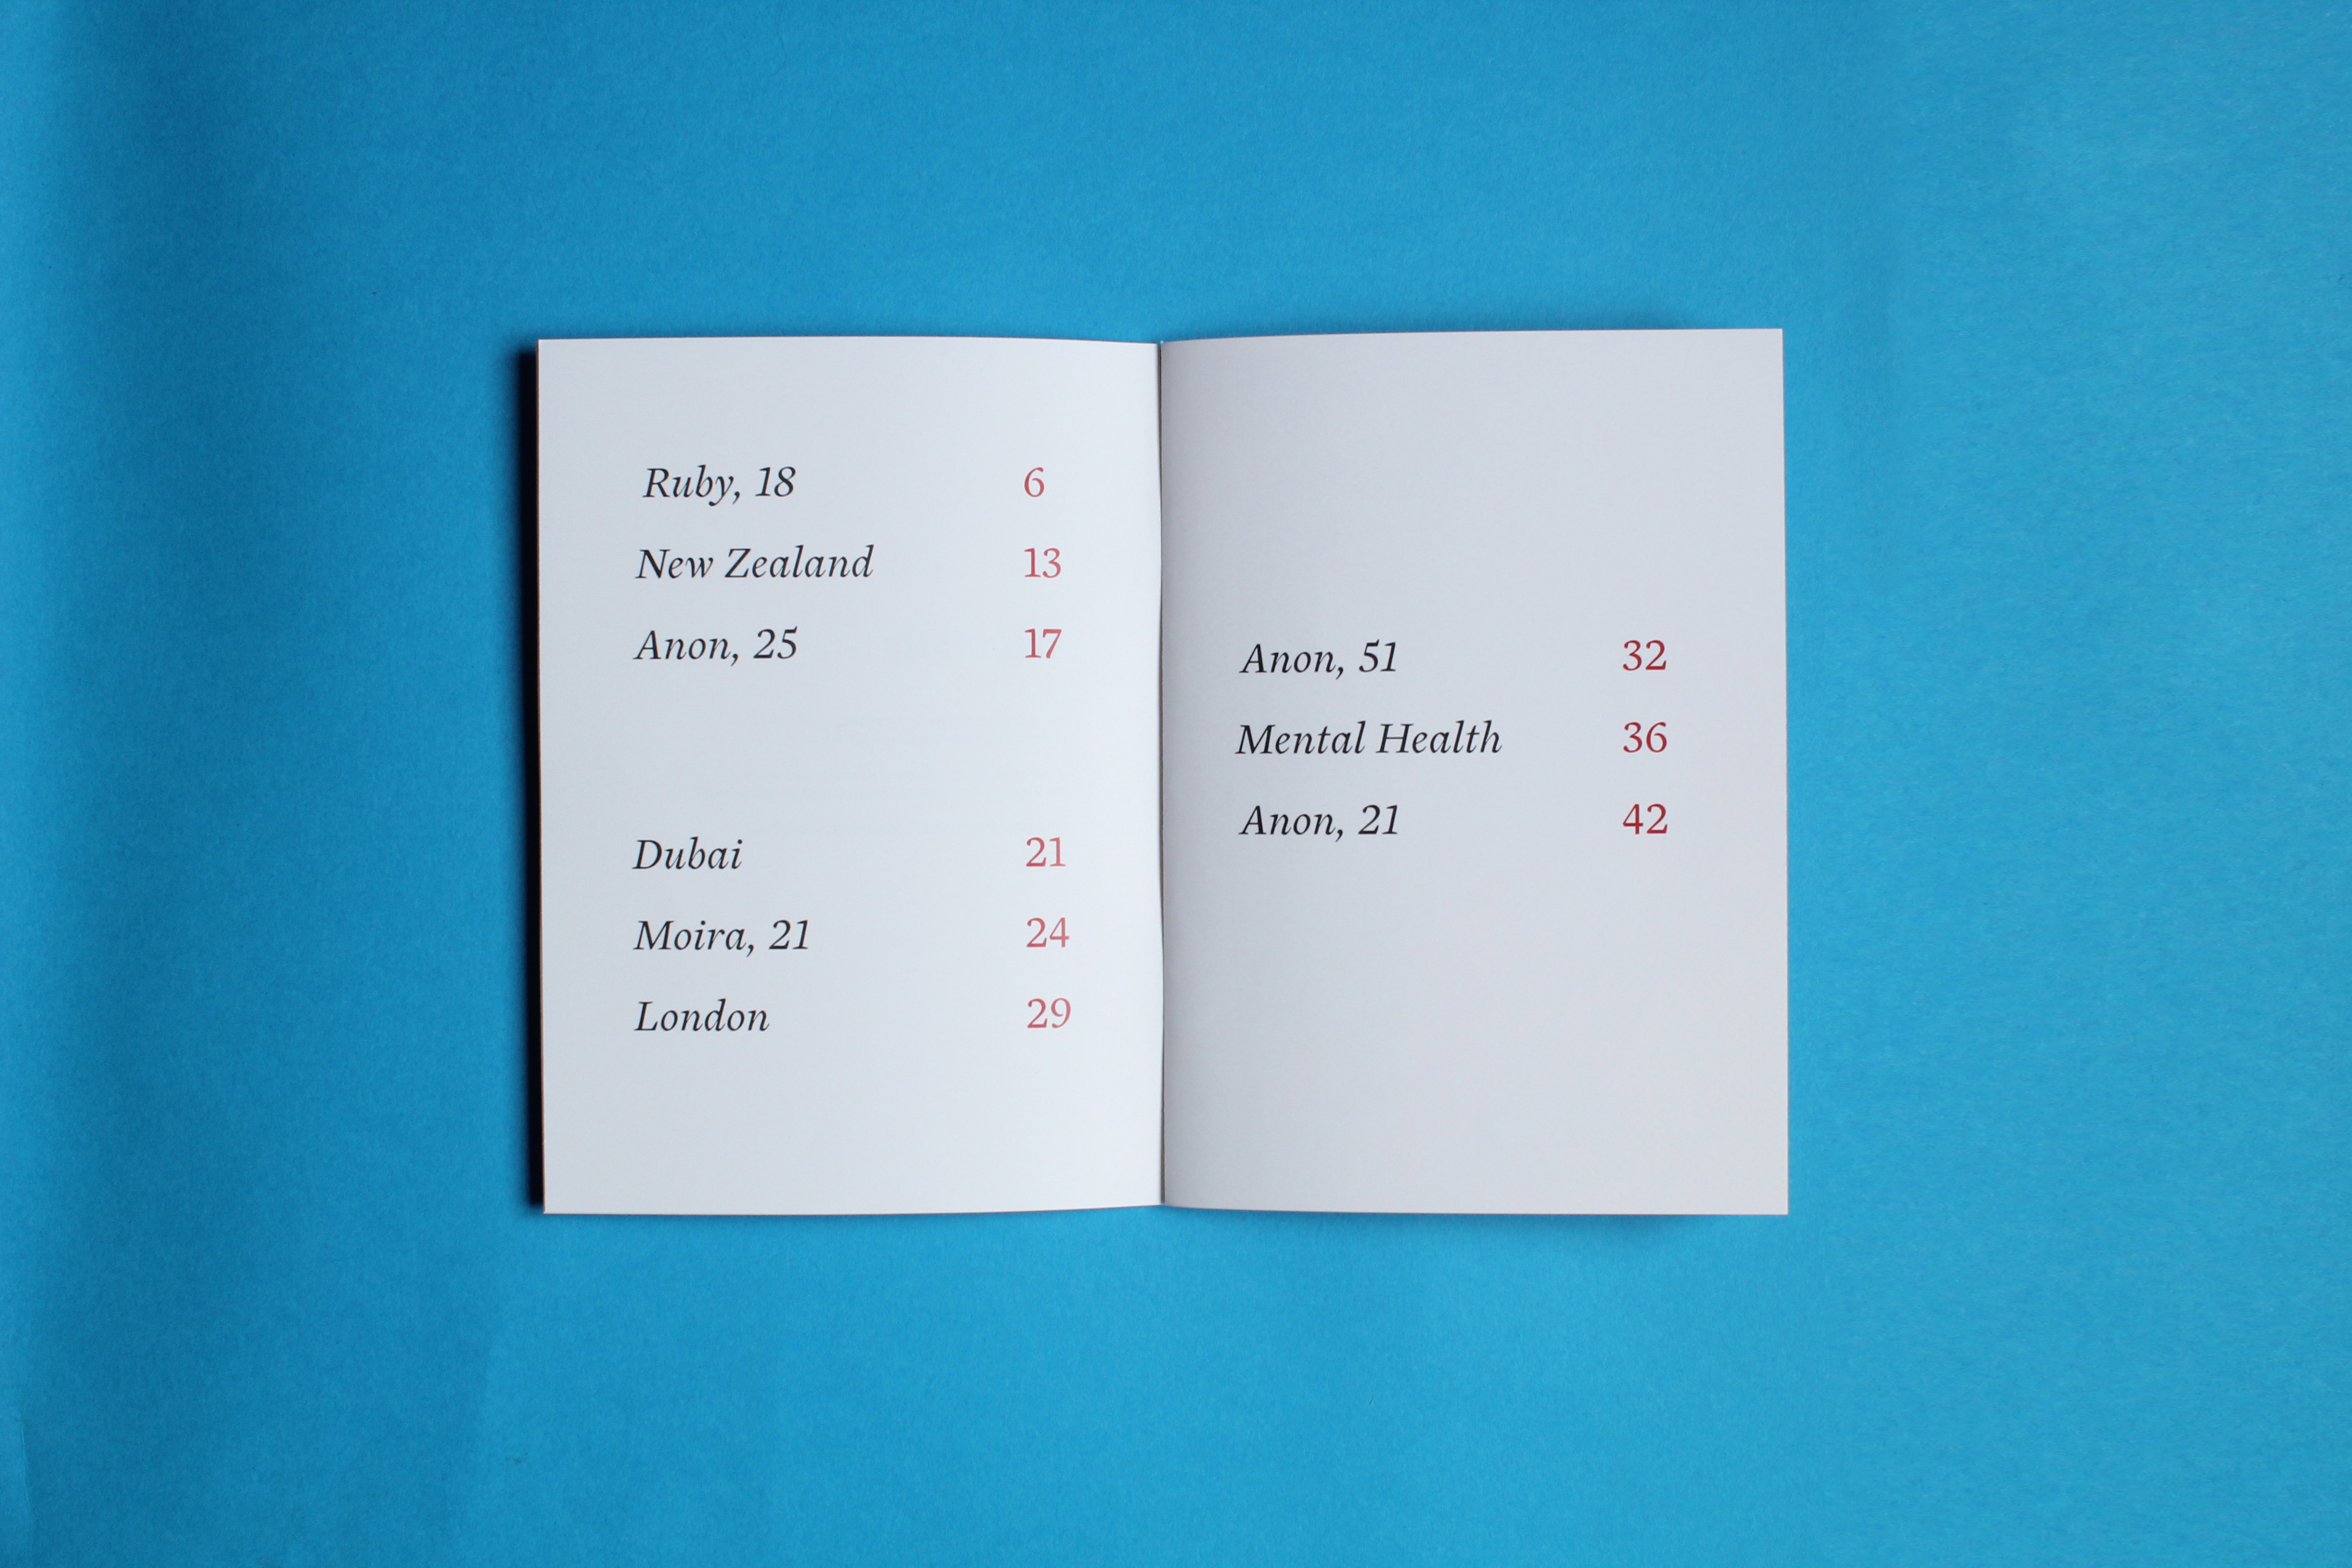 Ruby, 18 6
New Zealand 13
Anon, 25 17
Dubai 21
Moira, 21 24
London 29
Anon, 51 32
Mental Health 36
Anon, 21 42